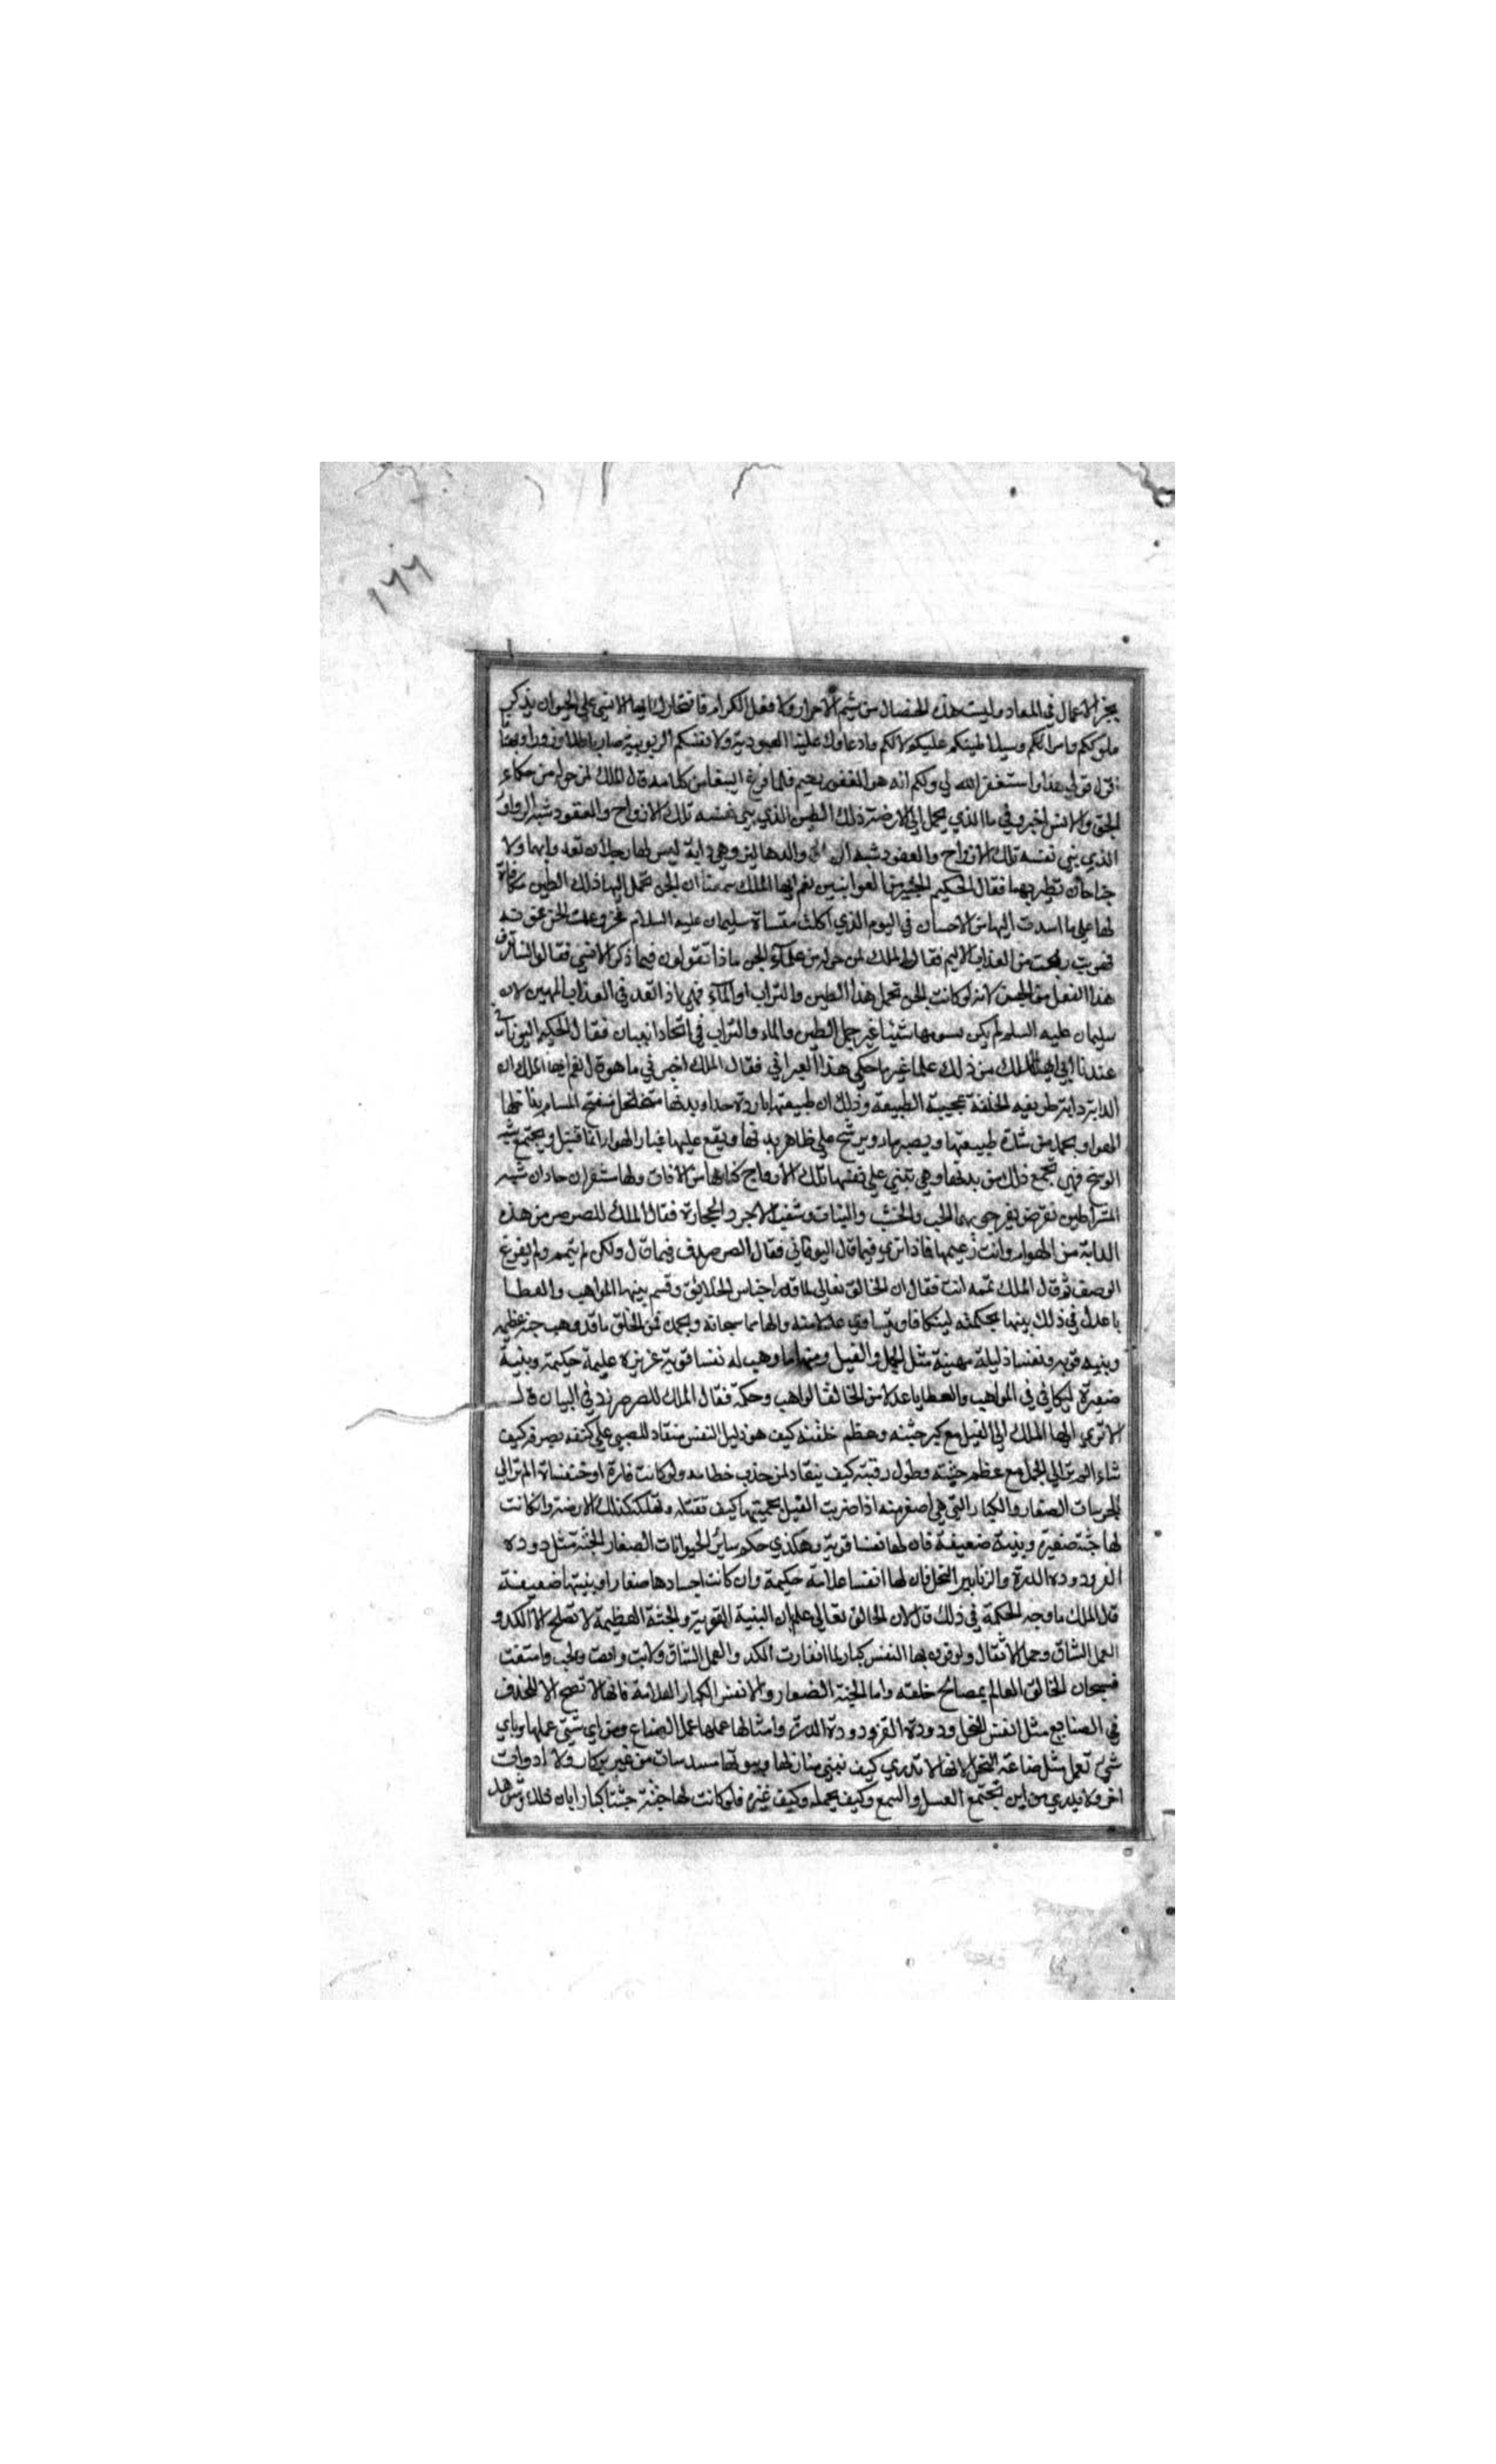 ١٦٦
بجزا الاعمال في المعاد وليست هذه الخصال من شيم الاحرار ولا فعل الكرام فافتخارك ايها الانسي علي الحيوان بذكر
ملوككم وامرائكم وسلاطينكم عليكم لا لكم وادعاوك علينا العبودية ولانفسكم الربوبية صار باطلا وزورا وبهتانا
اقول قولي هذا واستغفر الله لي ولكم انه هو الغفور رحيم فلما فرغ الببغا من كلامه قال الملك لمن حوله من حكماء
الجن والانس اخبروني ما الذي يحمل الي الارضة ذلك الطين الذي يبني نفسه تلك الازواح والعقود شبه الرواق
الذي يبني نفسه تلك الازواح والعقود شبه والدهاليز وهي داية ليس لها رجلان تعد وابهما ولا
جناحان تطير بهما فقال الحكيم الخبير من العوانيين نعم ايها الملك سمعنا ان الجن تحمل اليها ذلك الطين مكافاة
لها علي ما اسدت اليها من الاحسان في اليوم الذي اكلت منساة سليمان عليه السلام فخر وعلمت الجن
من العذاب الاليم فقال الملك لمن حوله من علماء الجن ماذا تقولون فيما ذكر الانسي فقالوا لسنا نعرف
هذا الفعل من الجن لانه لو كانت الجن تحمل هذا الطين والتراب او الماء فهي اذا تعد في العذاب المهين لان
سليمان عليه السلم لم يكن يسومها شيئا غير حمل الطين والماء والتراب في اتخاد البنيان فقال الحكيم اليوناني
عندنا ايها الملك من ذلك علما غير ما حكي هذا العبراني فقال الملك اخبرني ما هو قال نعم ايها الملك ان
الدابة دابة طريفيه الخلقة عجيبة الطبيعة وذلك ان طبيعتها باردة جدا وبدنها متخلخل منفتح المسام يخالطها
الهوا ويجمد من شدة طبيعتها ويصير ماء ويرشح علي ظاهر بدنها ويقع عليها غبار الهوا دائما فتبتل ويجتمع شبه
الوسخ فهي تجمع ذلك من بدنها وهي تبني علي نفسها تلك الازواج كنا لها من الافات ولها مشفران حادان شبه
المشراطين تقرض بهما الحب والخشب والنبات وتثقب الاجر والحجارة فقال الملك للصرصر من هذه
الدابة من الهوام وانت زعيمها فماذا تري فيما قال اليوناني فقال الصرصر صدق فيما قال ولكن لم يتمم ولم يفرغ
الوصف ثم قال الملك تممه انت فقال ان الخالق تعالي لما قدر اجناس الخلائق وقسم بينها المواهب والعطايا
باعدل في ذلك بينها بحكمته ليتكافا ويتساوي عدلا منه والهاما سبحانه وبحمده فمن الخلق ما قد وهب جثة عظيمة
وبنيه قويه ونفسا ذليلة مهينة مثل الجمل والفيل ومنها ما وهب له نفسا قوية عزيزه عليمة حكيمة وبنية
صغيرة ليكافي في المواهب والعطايا عدلا من الخالق الواهب وحكمة فقال الملك للصرصر زدني البيان قال
الا تري ايها الملك الي الفيل مع كبر جثته وعظم خلقته كيف هو ذليل النفس منقاد للصبي علي كتفه يصرفه كيف
شاء الم تر الي الجمل مع عظم جثته وطول رقبته كيف ينقاد لمن جذب خطامه ولو كانت فارة او خنفساة الم تر الي
الجربات الصغار والكبار التي هي اصغر منه اذا ضربت الفيل بحميتها كيف تقتله وتهلكه كذلك الارضة وان كانت
لها جثة صغيرة وبنية ضعيفة فان لها نفسا قوية وهكذي حكم سائر الحيوانات الصغار الجثة مثل دوده
القز ودوده الدرة والزنابير النحل فان لها انفسا علامة حكيمة وان كانت اجسادها صغارا وبنيتها ضعيفة
قال الملك ما وجه الحكمة في ذلك قال لان الخالق تعالي علم ان البنية القوية والجثة العظيمة لا تصلح الا للكد و
العمل الشاق وحمل الاثقال ولو قرن بها النفس كبار لما انقادت للكد والعمل الشاق ولابت وانفت
فسبحان الخالق العالم بمصالح خلقه واما الجثة الصغار والانفس الكبار العلامة فانها لا تصح الا للحذف
في الصنايع مثل انفس النحل ودودة القز ودودة الدرة وامثالها عملها عمل الصناع ومن اي شئ عملها وباي
شئ تعمل مثل صناعة النحل لانها لا تدري كيف تبني منازلها وبيوتها مسدسات من غير بركار ولا ادوات
اخر ولا يدري من اين تجتمع العسل والسمع وكيف يحمله وكيف غيره فلو كانت لها جثة جثتا كبار ابان ذلك وشوهد